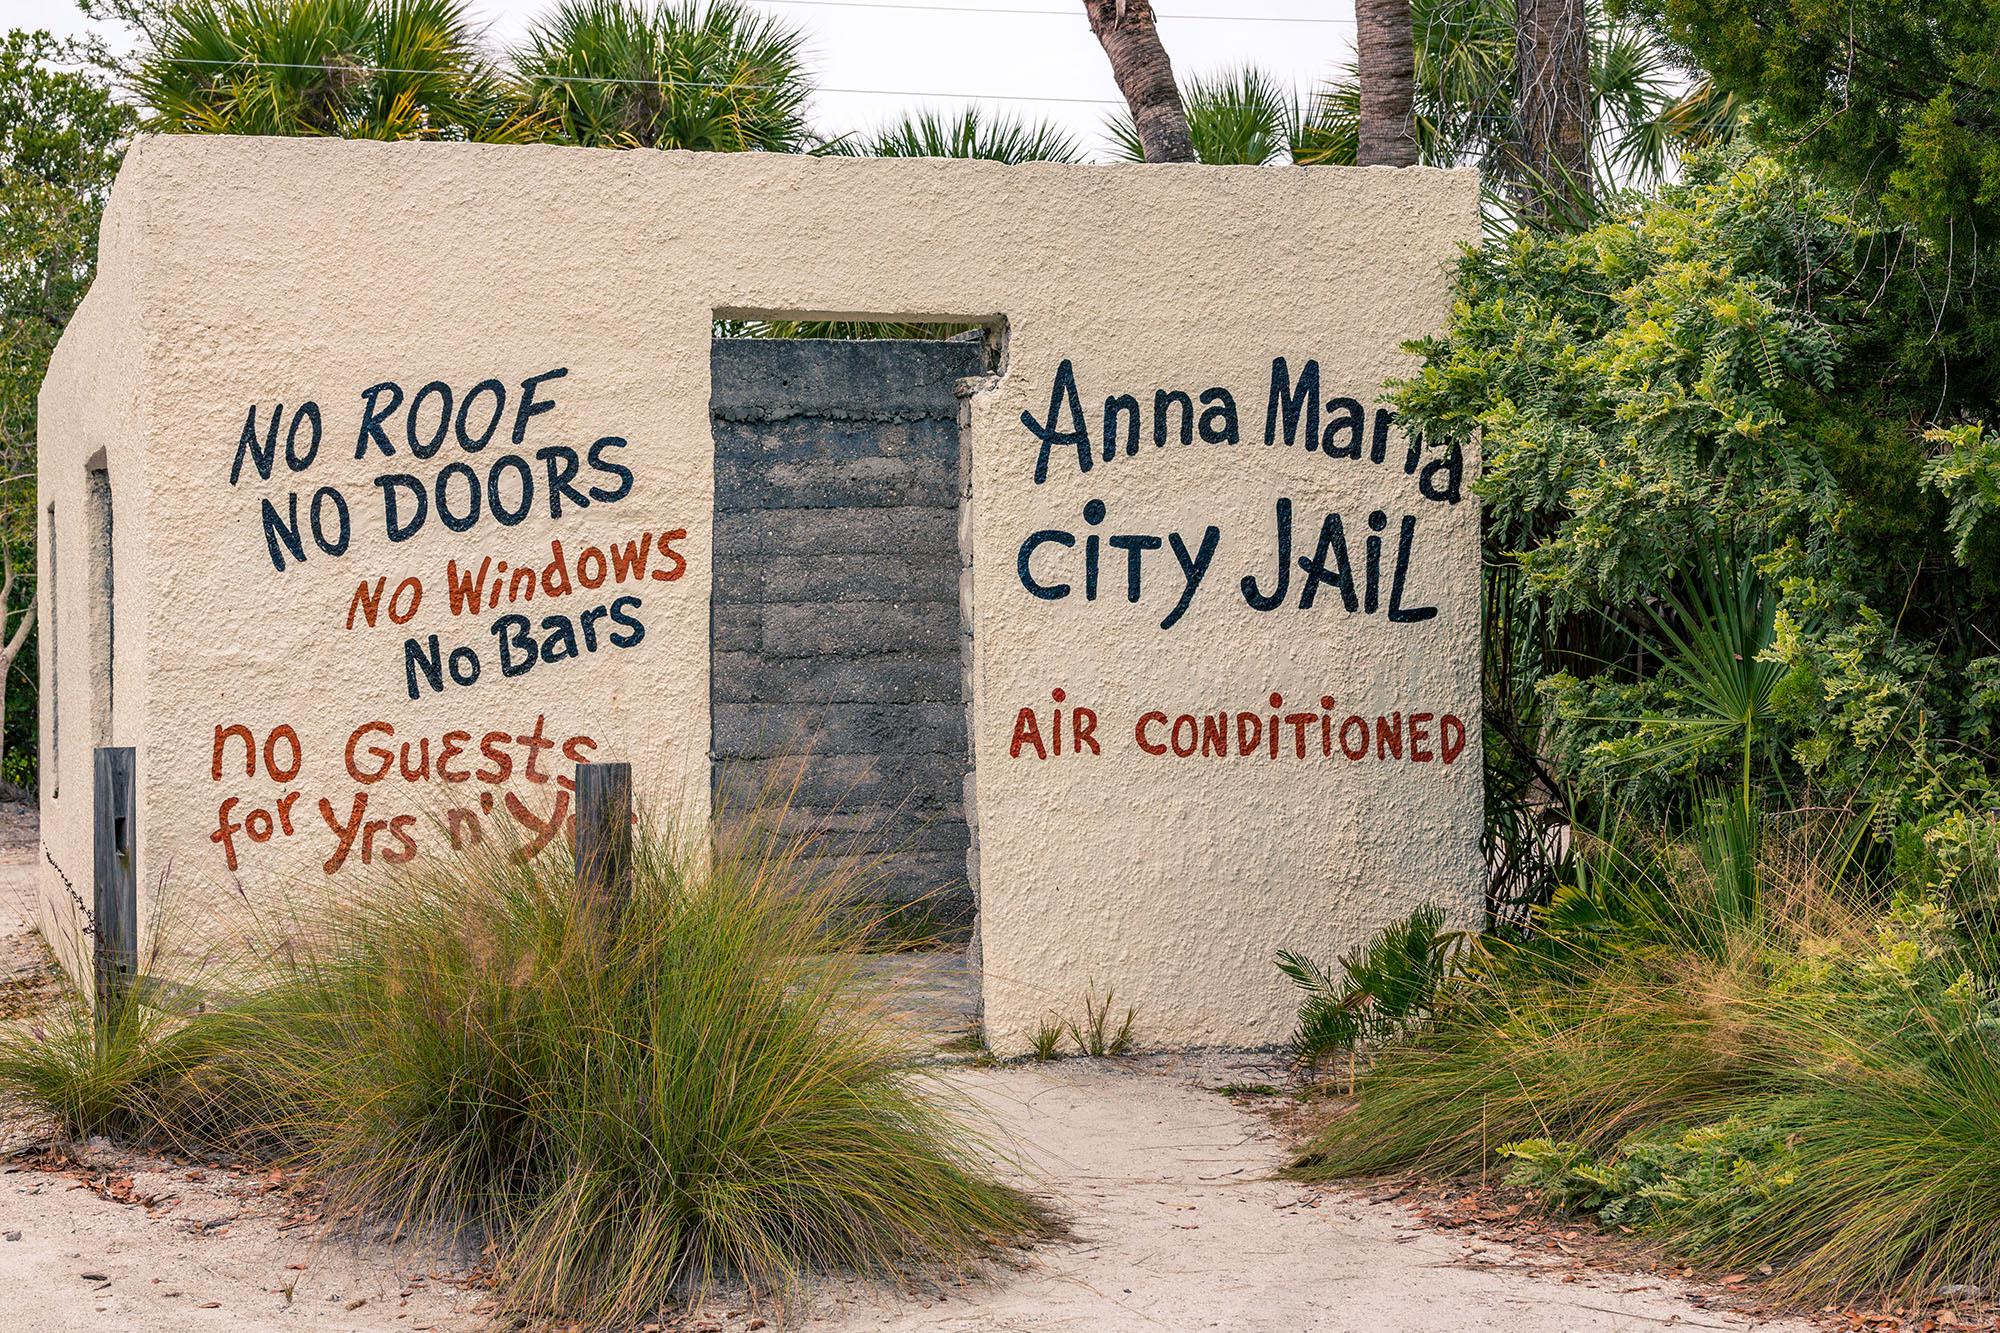 NO ROOF
NO DOORS
NO Windows
No Bars
no Guests
for Yrs n'
Anna Maria
CiTY JAiL
AiR CONDiTiONED